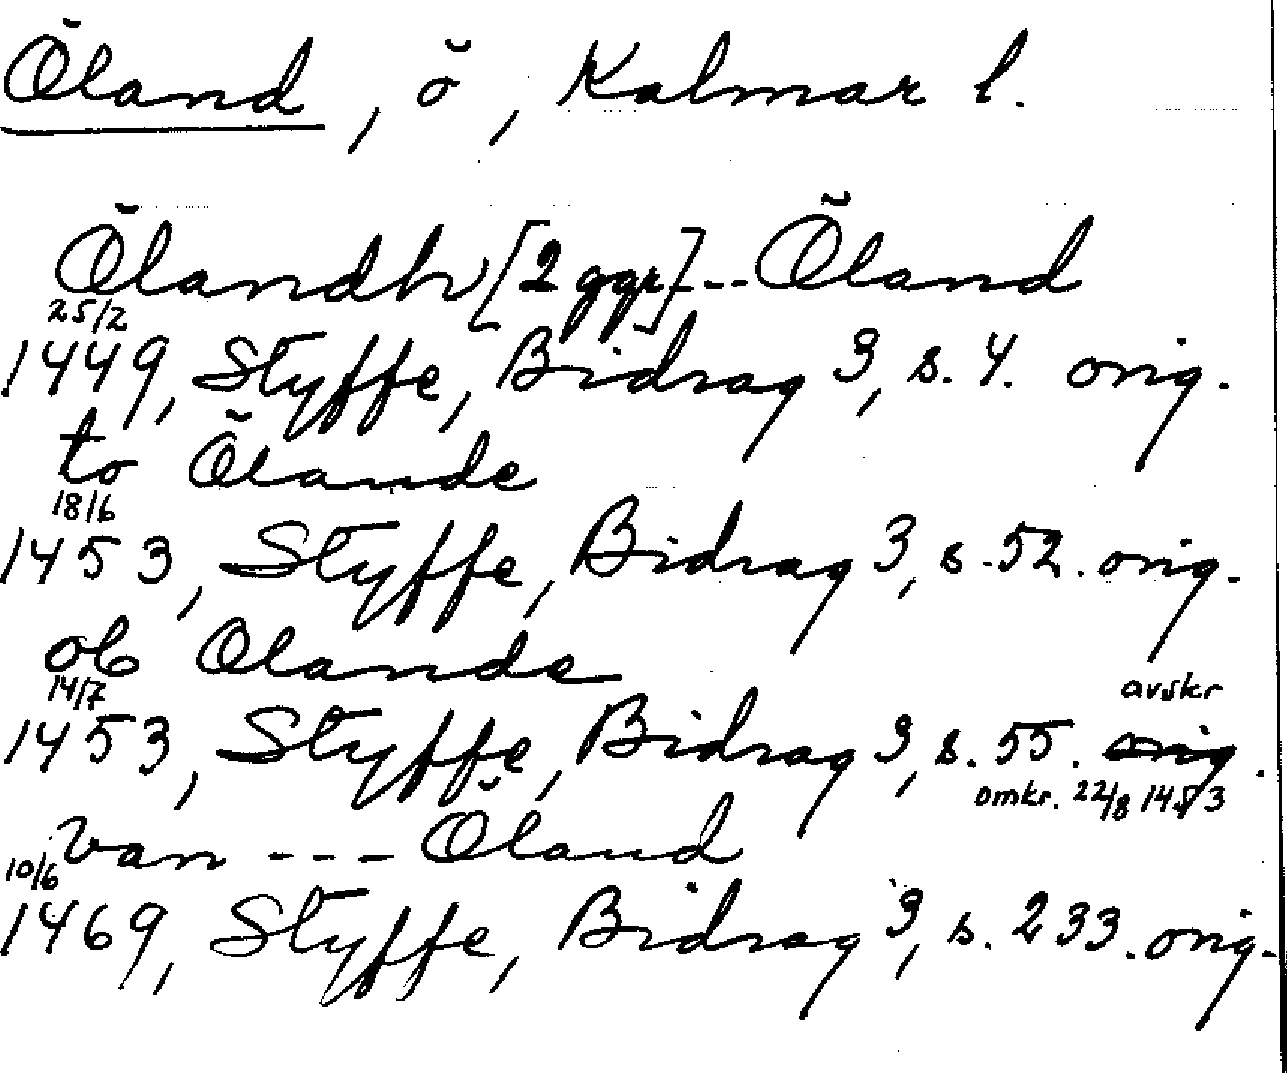 Öland, ö, Kalmar l.
Ölandh [2 ggr] -- Öland
25/2
1449, Styffe, Bidrag 3, s. 4. orig.
to Ölande
18/6
1453, Styffe, Bidrag 3, s. 52. orig.
ob Olande
14/7 avskr
1453, Styffe, Bidrag 3, s. 55. orig.
omkr. 22/8 1453
van --- Öland
10/6
1469, Styffe, Bidrag 3, s. 233. orig.